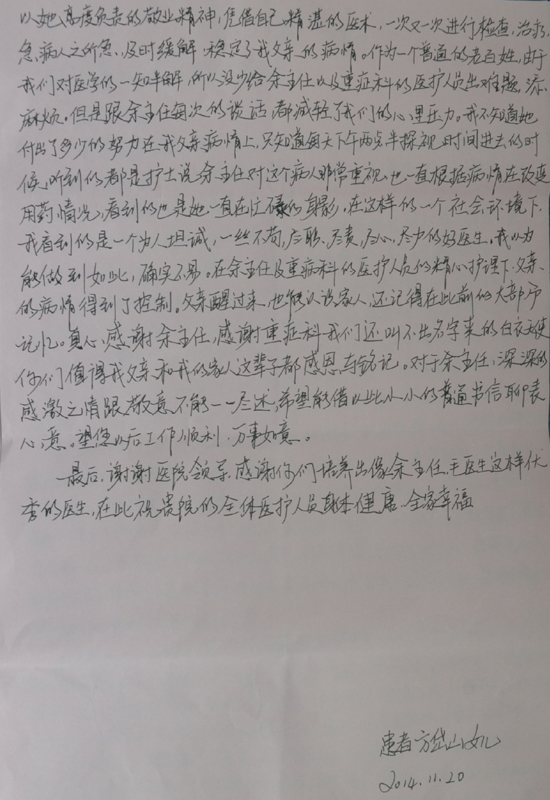 以她高度负责的敬业精神，凭借自己精湛的医术，一次又一次进行检查，治疗，
急病人之所急，及时缓解稳定了我父亲的病情。作为一个普通的老百姓，由于
我们对医学的一知半解，所以没少给余主任以及重症科的医护人员出难题 添
麻烦。但是跟余主任每次的谈话都减轻了我们的心理压力。我不知道她
付出了多少的努力在我父亲病情上，只知道每天下午两点半探视时间进去的时
候，听到的都是护士说余主任对这个病人非常重视，也一直根据病情在改进
用药情况，看到的也是她一直在忙碌的身影，在这样的一个社会环境下，
我看到的是一个为人坦诚，一丝不苟，尽职，尽责，尽心，尽力的好医生。我以为
能做到如此，确实不易。在余主任及重症科的医护人员的精心护理下，父亲
的病情得到了控制。父亲醒过来，也能认识家人，还记得在此前的大部分
记忆。真心感谢余主任，感谢重症科我们还叫不出名字来的白衣天使
你们值得我父亲和我的家人这辈子都感恩与铭记。对于余主任，深深的
感激之情跟敬意不能一一尽述，希望能借以此小小的普通书信聊表
心意。望您以后工作顺利，万事如意。
最后，谢谢医院领导，感谢你们培养出像余主任，王医生这样优
秀的医生，在此祝贵院的全体医护人员身体健康，全家幸福
患者 方 女儿
2014.11.20